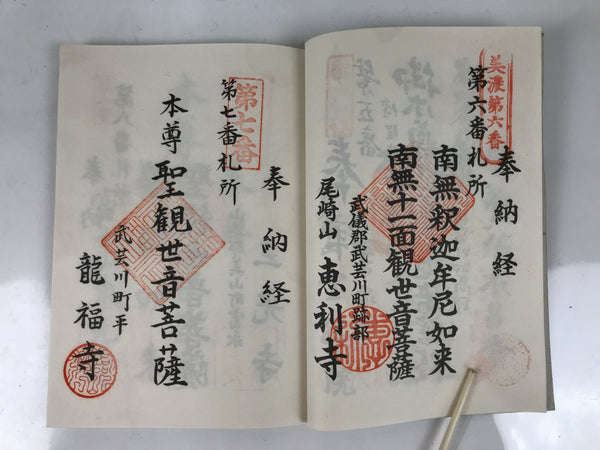 美濃第六番
奉納経
第六番札所
南無釈迦牟尼如来
南無十一面観世音菩薩
武儀郡武芸川町跡部
尾崎山 恵利寺
奉納経
第七番
第七番札所
本尊 聖観世音菩薩
武芸川町平
龍福寺